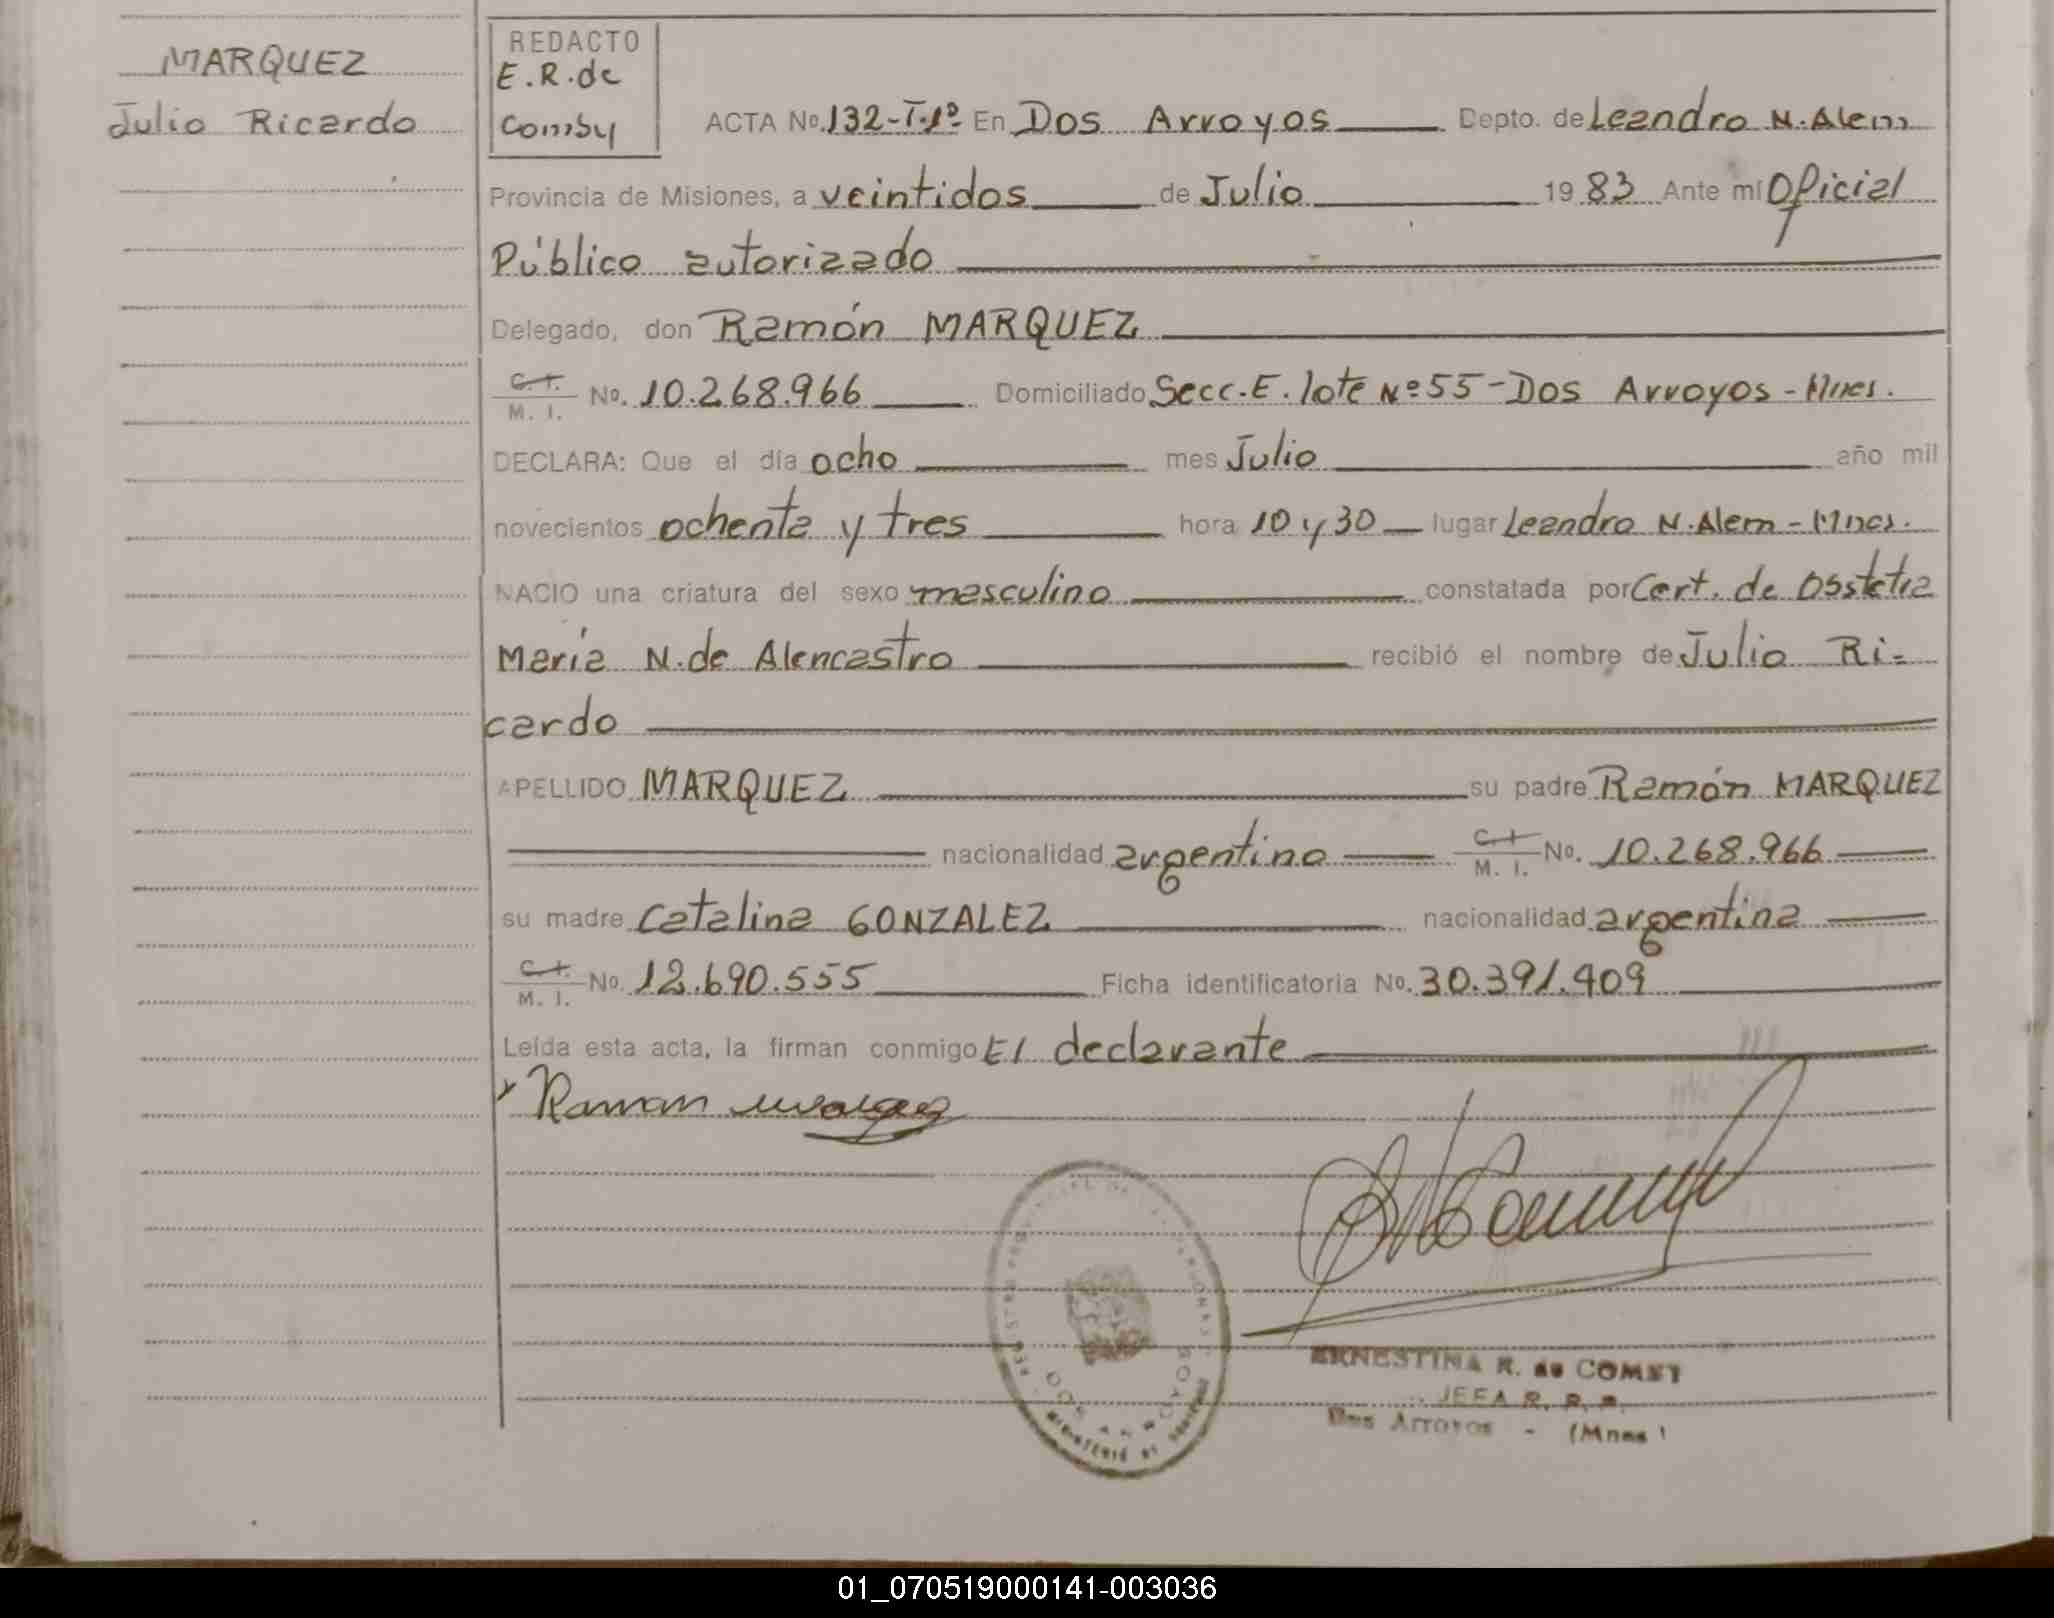 MARQUEZ
Julio Ricardo
REDACTO
E.R.de
Comby
ACTA No. 132-T.1º En Dos Arroyos Depto. de Leandro N. Alem
Provincia de Misiones, a veintidos de Julio 1983 Ante mí Oficial
Público autorizado
Delegado, don Ramón MARQUEZ
C.I. M. I. No. 10.268.966 Domiciliado Secc.E. lote Nº 55 - Dos Arroyos - Mnes.
DECLARA: Que el día ocho mes Julio año mil
novecientos ochenta y tres hora 10 y 30 lugar Leandro N. Alem - Mnes.
NACIO una criatura del sexo masculino constatada por Cert. de
María N. de Alencastro recibió el nombre de Julio Ri-
cardo
APELLIDO MARQUEZ su padre Ramón MARQUEZ
nacionalidad argentino C.I. M. I. No. 10.268.966
su madre Catalina GONZALEZ nacionalidad argentina
C.I. M. I. No. 12.690.555 Ficha identificatoria No. 30.391.409
Leída esta acta, la firman conmigo El declarante
Ramon
DOS ARROYOS
ERNESTINA R. de
JEFA R. P.
Dos Arroyos - (Mnes)
01_070519000141-003036